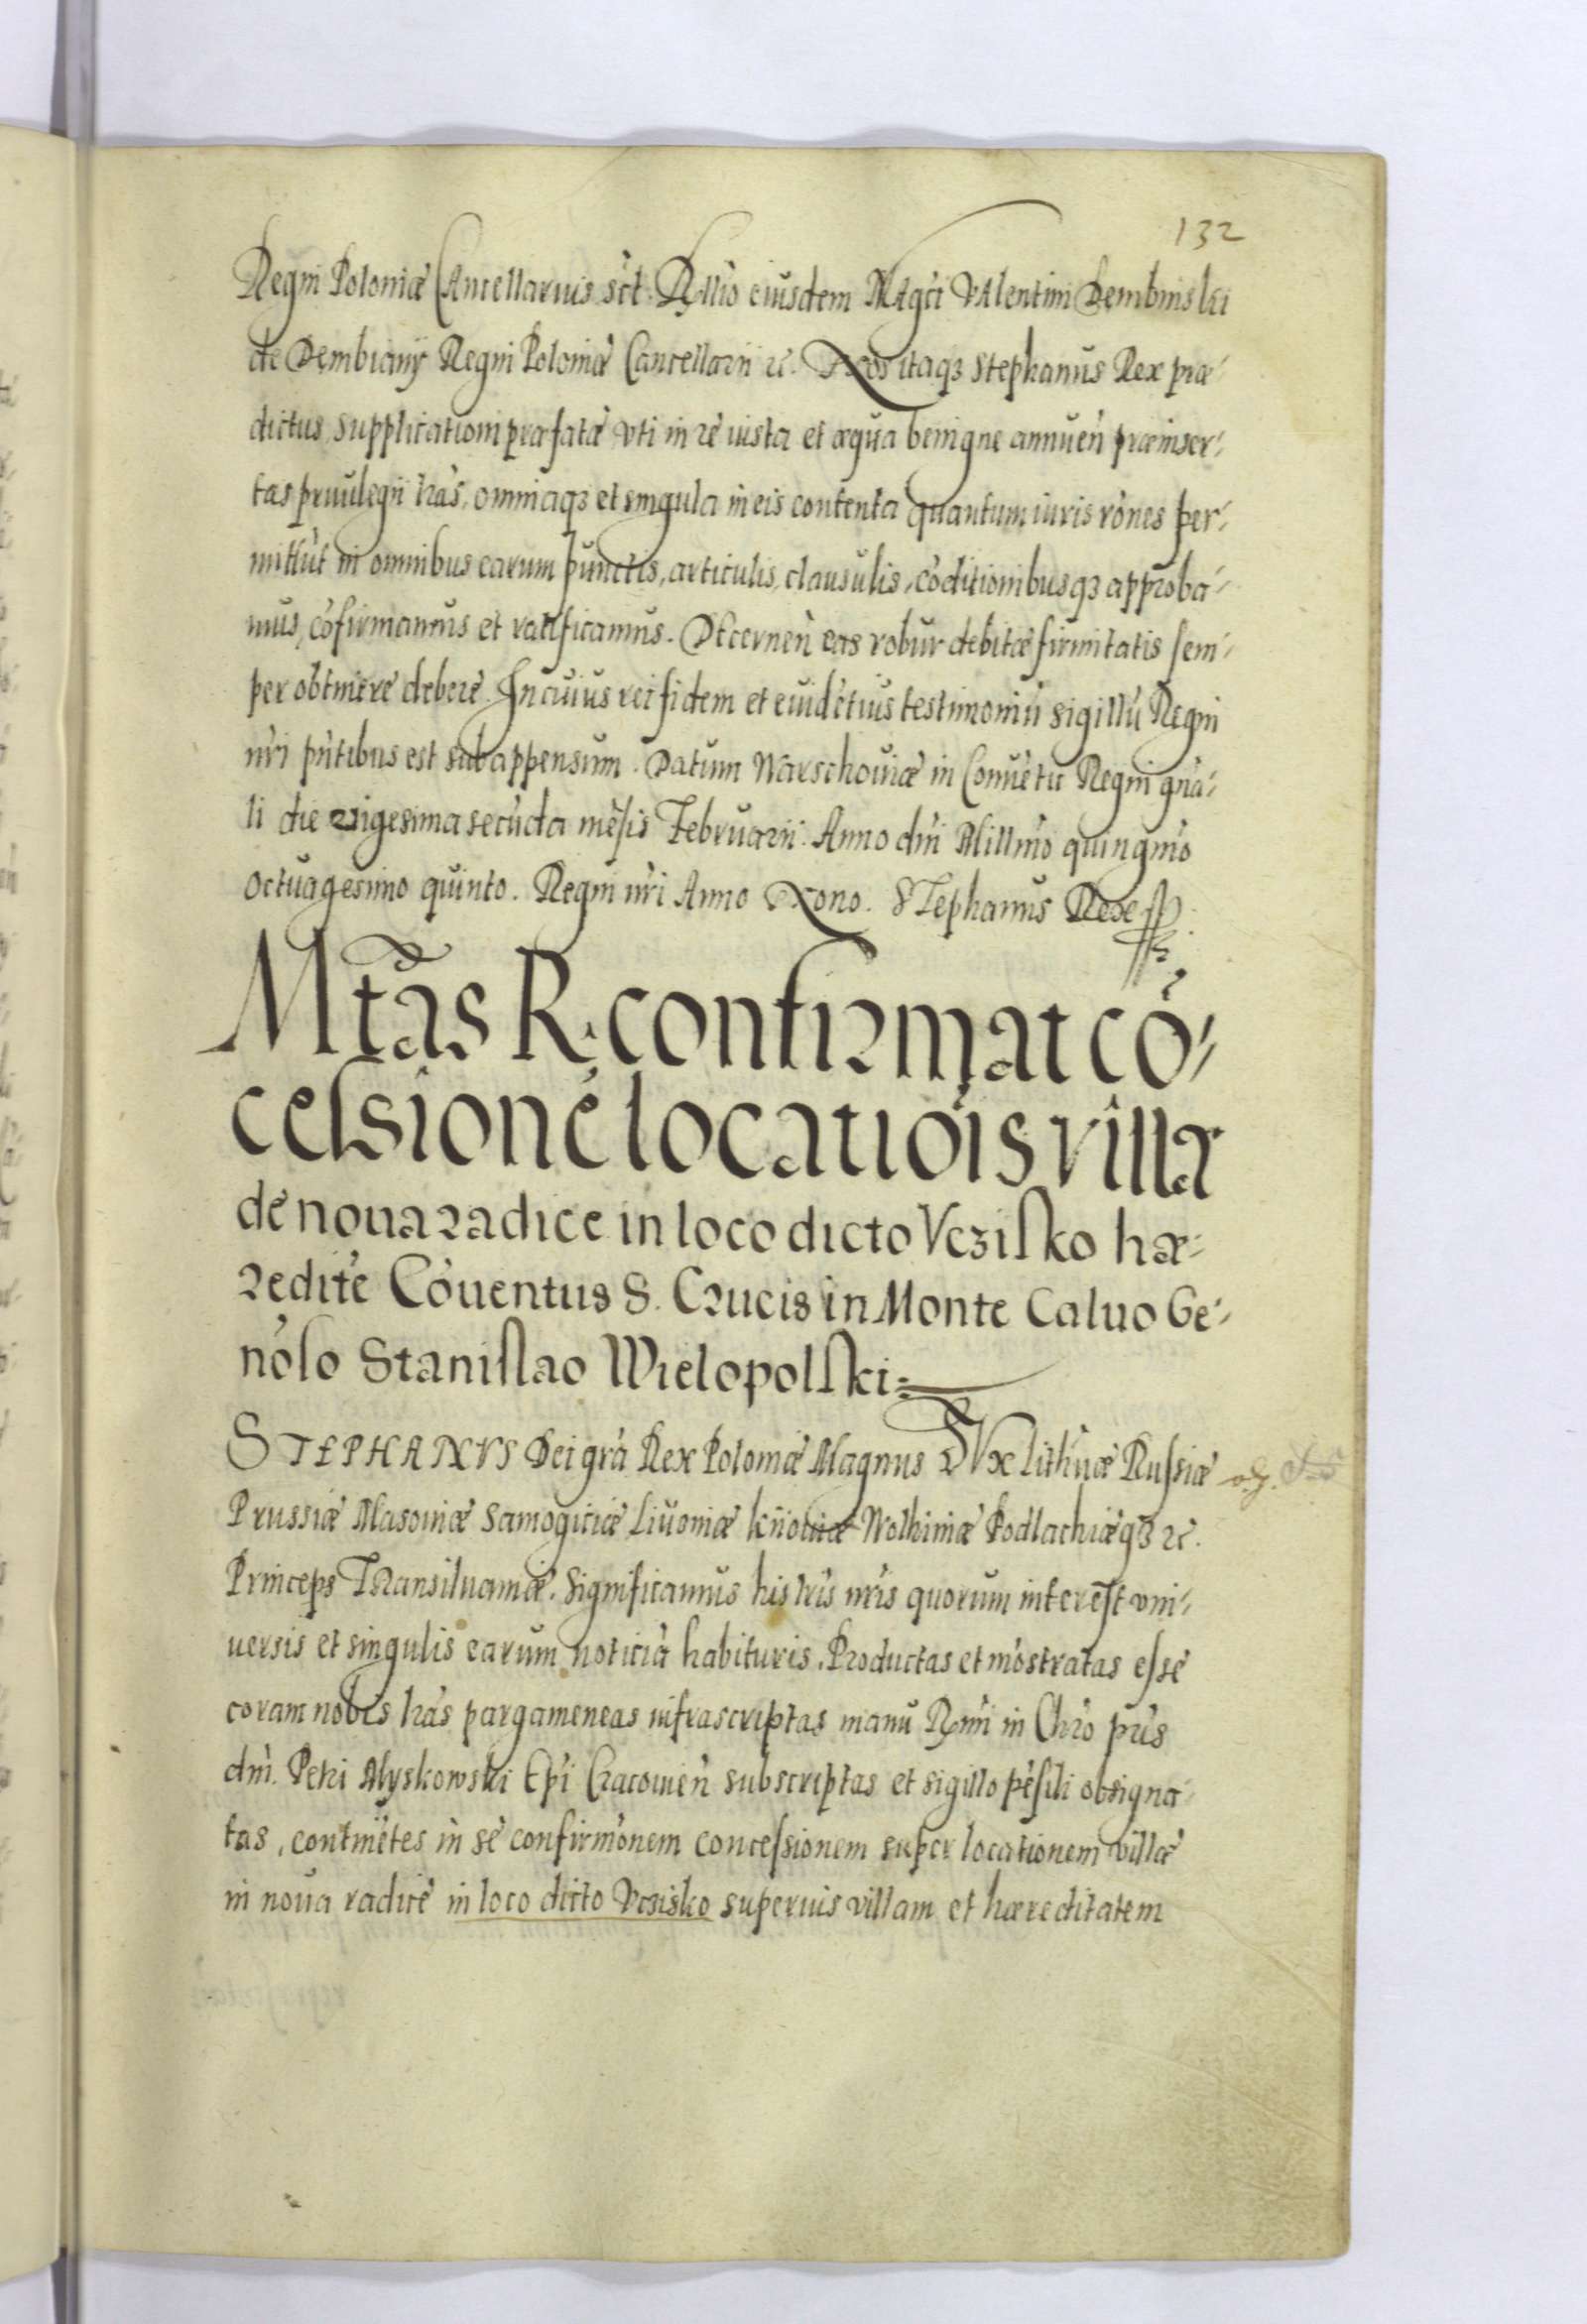 132
Regni Poloniæ Cancellarius sst. Rellio eiusdem Magci Valentini Dembinskii
de Dembiany Regni Poloniæ Cancellarii &c. Nos itaqz Stephanus Rex præ-
dictus, supplicationi præfatæ vti in re iusta et æqua benigne annuen̄ præinser-
tas priuilegii lr̄as, omniaqz et singula in eis contenta quantum iuris rōnes per-
mittūt in omnibus earum punctis, articulis, clausulis, cōditionibusqz approba-
mus, cōfirmamus et ratificamus. Decernen̄ eas robur debitæ firmitatis sem-
per obtinere debere. In cuius rei fidem et euidētius testimoniū sigillū Regni
nr̄i pn̄tibus est subappensum. Datum Warschouiæ in Conuētu Regni gn̄a-
li die vigesima secūda mēsis Februarii. Anno dn̄i Millmo quingmo
octuagesimo quinto. Regni nr̄i Anno Nono. Stephanus Rex
Mtas R. confirmat cō-
cessionē locatiōis villæ
de noua radice in loco dicto Vcziſko hæ-
redite Cōuentus S. Crucis in Monte Caluo Ge-
nōso Stanislao Wielopolſki
STEPHANVS Dei grā Rex Poloniæ Magnus DVx Lithuæ Russiæ
Prussiæ Masouiæ Samogitiæ Liuoniæ kiiouiæ Wolhiniæ Podlachiæqz &c.
Princeps Transiluaniæ. Significamus his lr̄is nr̄is quorum interest vni-
uersis et singulis earum noticiā habituris. Productas et mōstratas esse
coram nobis lr̄as pargameneas infrascriptas manu Rmi in Chro pr̄is
dn̄i. Petri Myskowski Epi Cracouien̄ subscriptas et sigillo pēsili obsigna-
tas, continētes in se confirmōnem concessionem super locationem villæ
in noua radice in loco dicto Vcsisko superuis villam et hæreditatem